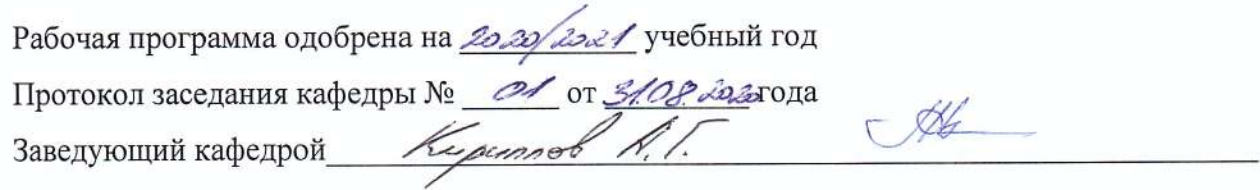 Рабочая программа одобрена на 2020/2021 учебный год
Протокол заседания кафедры № 01 от 31.08.2020 года
Заведующий кафедрой Кириллов А.Г.